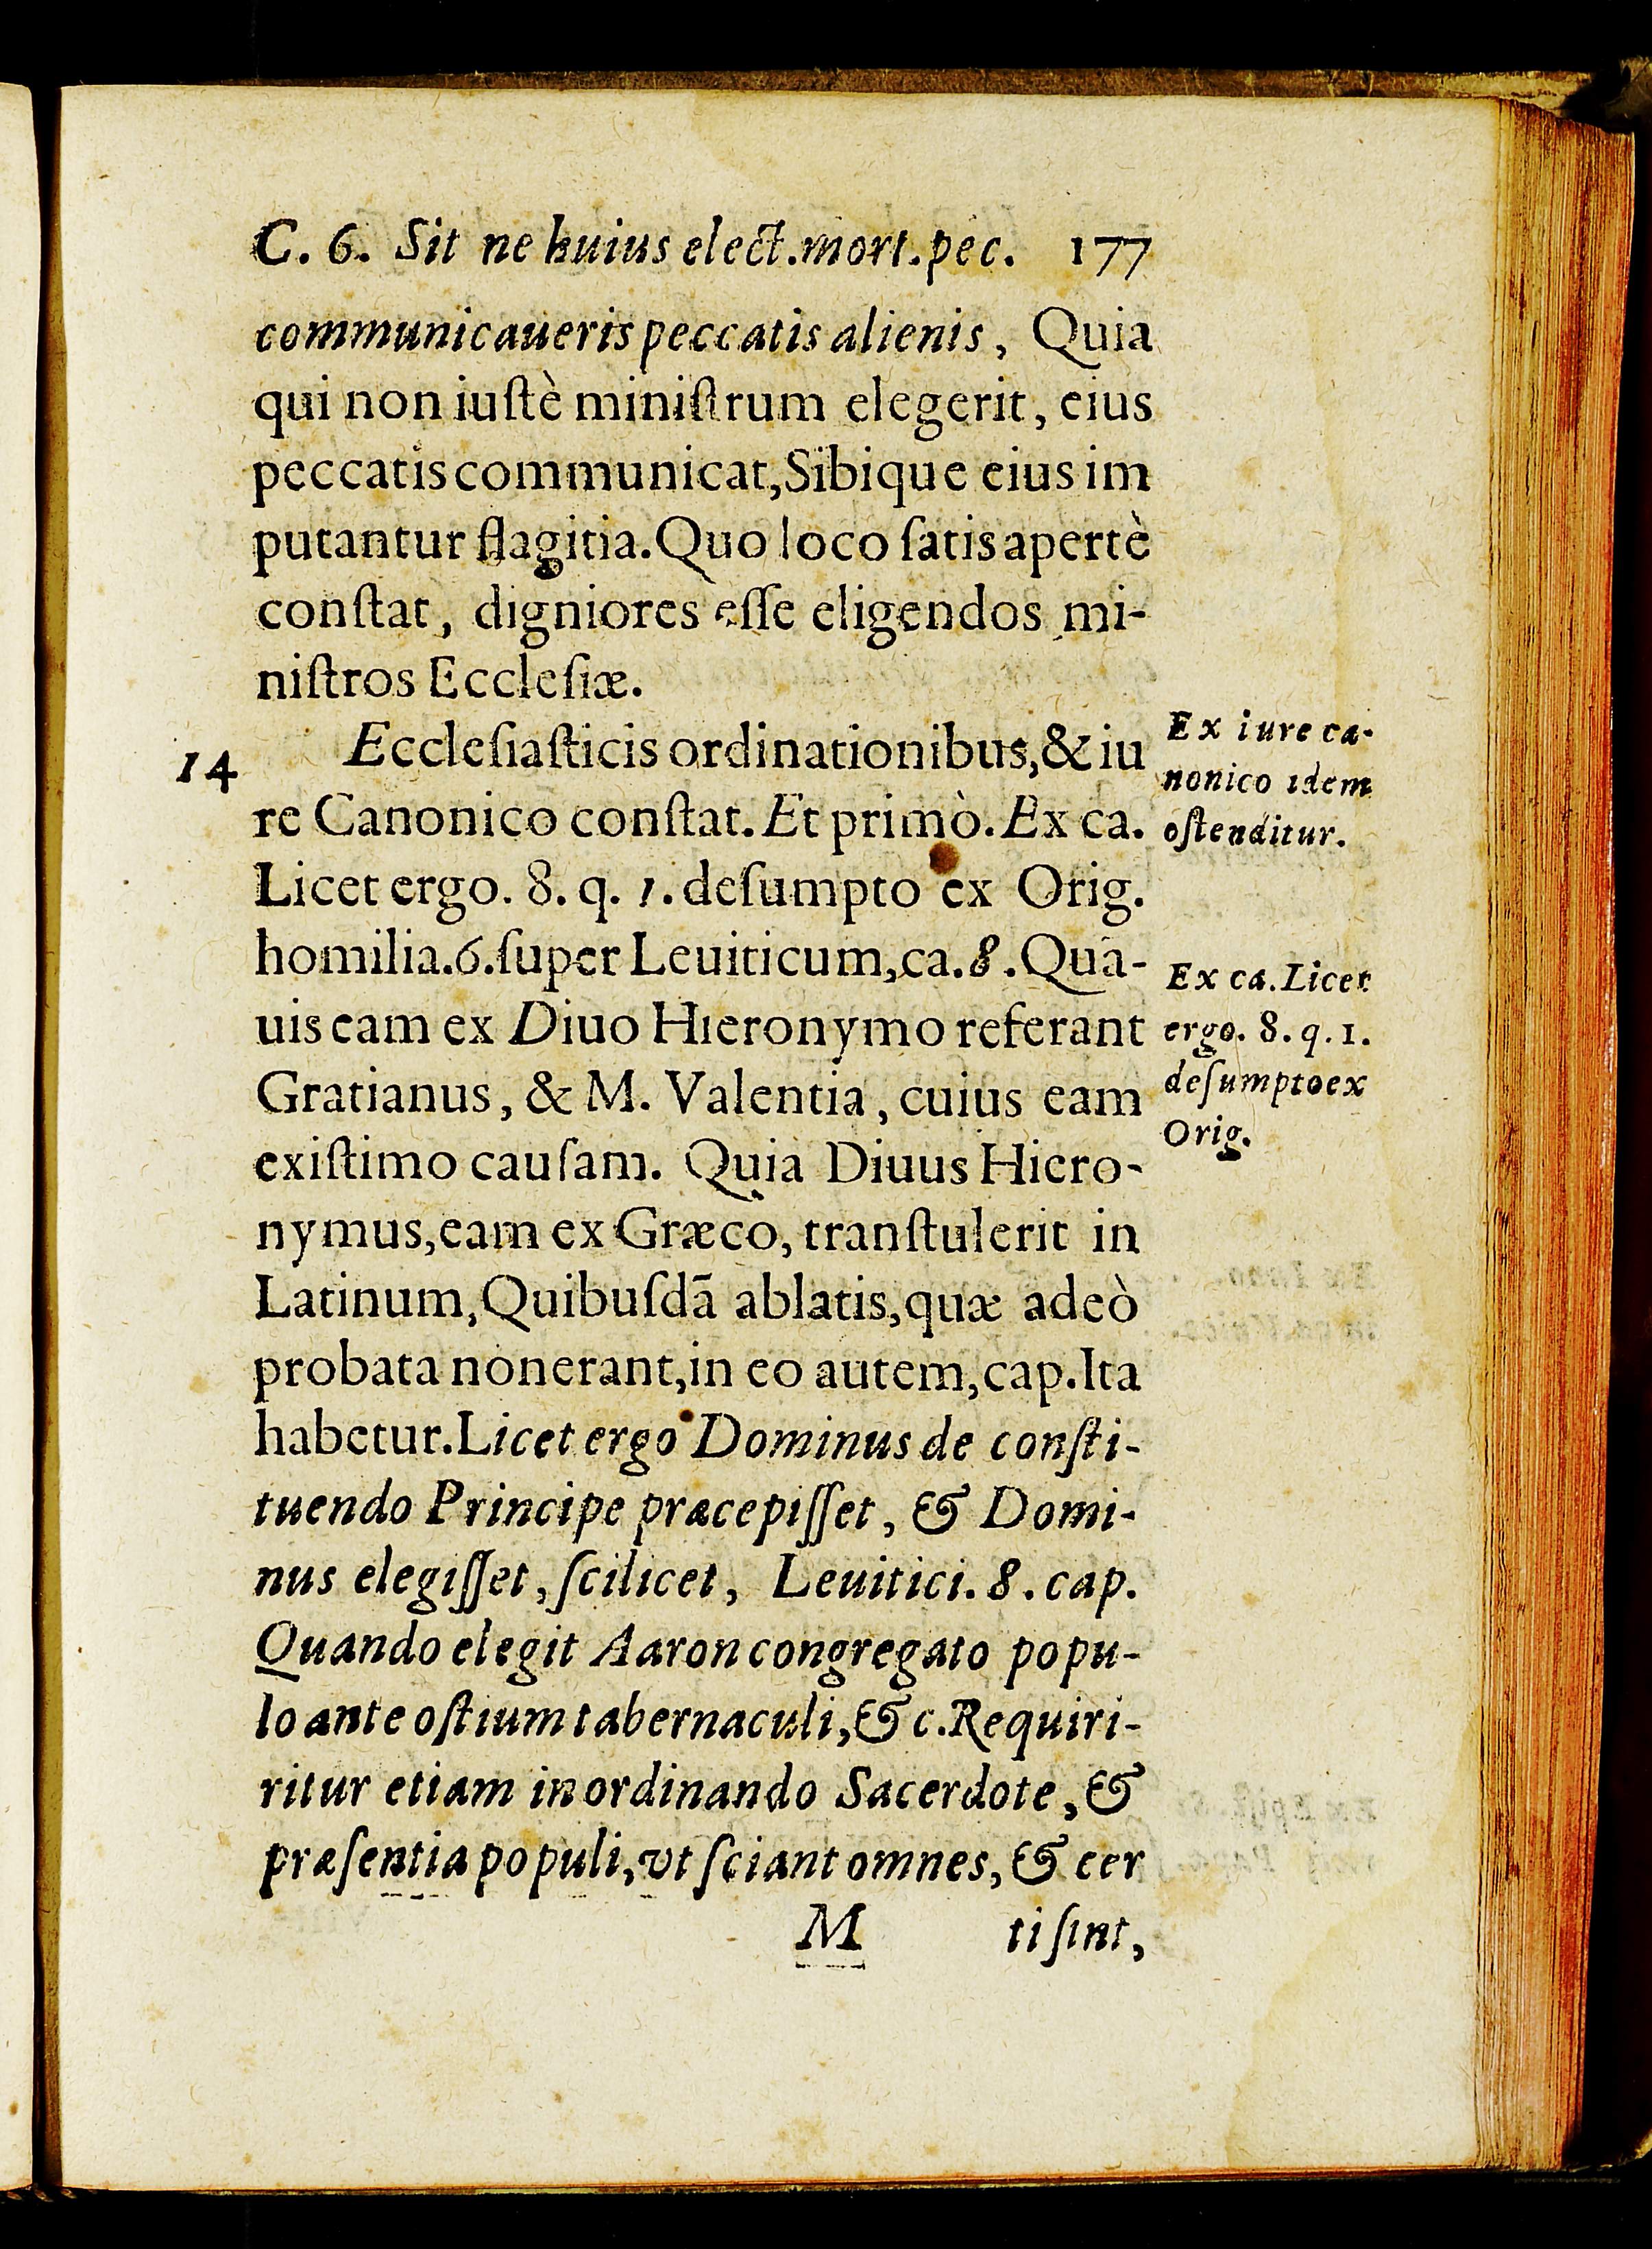 C. 6. Sit ne huius elect.mort.pec. 177
communicaueris peccatis alienis, Quia
qui non iuſtè miniſtrum elegerit, eius
peccatis communicat, Sibique eius im
putantur flagitia. Quo loco ſatis apertè
conſtat, digniores eſſe eligendos mi-
niſtros Eccleſiæ.
14 Eccleſiaſticis ordinationibus, & iu
re Canonico conſtat. Et primò. Ex ca.
Licet ergo. 8. q. 1. deſumpto ex Orig.
homilia.6.ſuper Leuiticum, ca.8. Quā-
uis eam ex Diuo Hieronymo referant
Gratianus, & M. Valentia, cuius eam
exiſtimo cauſam. Quia Diuus Hiero-
nymus, eam ex Græco, tranſtulerit in
Latinum, Quibuſdā ablatis, quæ adeò
probata non erant, in eo autem, cap. Ita
habetur. Licet ergo Dominus de conſti-
tuendo Principe præcepiſſet, & Domi-
nus elegiſſet, ſcilicet, Leuitici. 8. cap.
Quando elegit Aaron congregato popu-
lo ante oſtium tabernaculi, & c. Requiri-
ritur etiam in ordinando Sacerdote, &
præſentia populi, vt ſciant omnes, & cer
M ti ſint,
Ex iure ca-
nonico idem
oſtenditur.
Ex ca. Licet
ergo. 8. q. 1.
deſumpto ex
Orig.